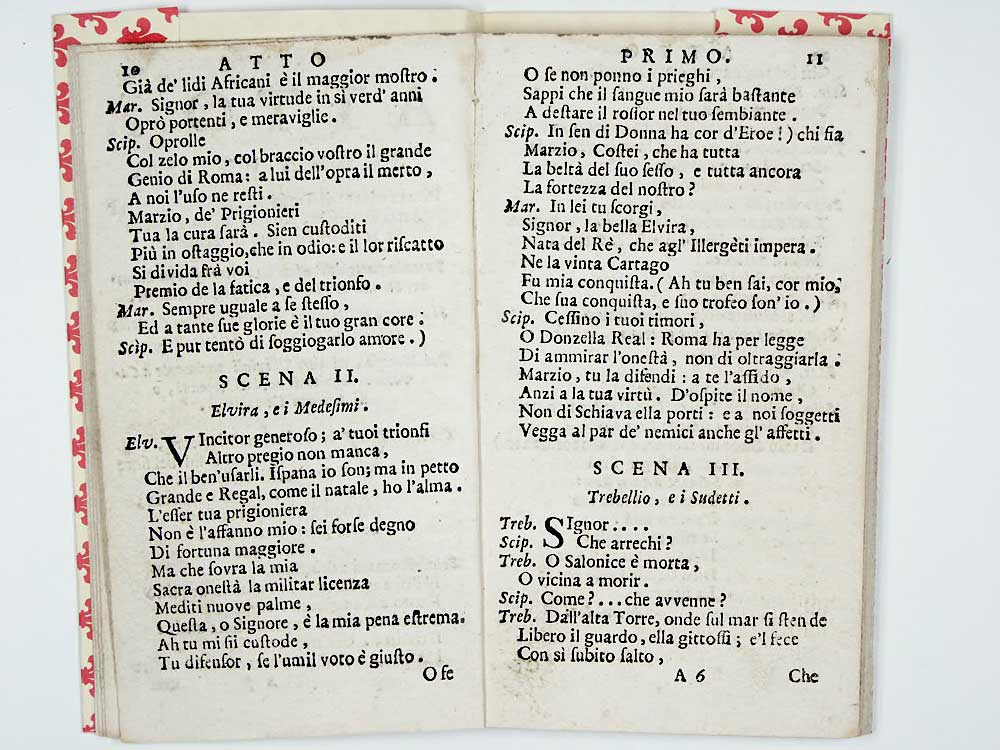 10 ATTO
Già de' lidi Africani è il maggior moſtro.
Mar. Signor, la tua virtude in sì verd' anni
Oprò portenti, e meraviglie.
Scip. Oprolle
Col zelo mio, col braccio voſtro il grande
Genio di Roma: a lui dell'opra il merto,
A noi l'uſo ne reſti.
Marzio, de' Prigionieri
Tua la cura ſarà. Sien cuſtoditi
Più in oſtaggio, che in odio: e il lor riſcatto
Si divida frà voi
Premio de la fatica, e del trionfo.
Mar. Sempre uguale a ſe ſteſſo,
Ed a tante ſue glorie è il tuo gran core.
Scip. E pur tentò di ſoggiogarlo amore.)
SCENA II.
Elvira, e i Medeſimi.
Elv. VIncitor generoſo; a' tuoi trionfi
Altro pregio non manca,
Che il ben'uſarli. Iſpana io ſon; ma in petto
Grande e Regal, come il natale, ho l'alma.
L'eſſer tua prigioniera
Non è l'affanno mio: ſei forſe degno
Di fortuna maggiore.
Ma che ſovra la mia
Sacra oneſtà la militar licenza
Mediti nuove palme,
Queſta, o Signore, è la mia pena eſtrema.
Ah tu mi ſii cuſtode,
Tu difenſor, ſe l'umil voto è giuſto.
O ſe
PRIMO. 11
O ſe non ponno i prieghi,
Sappi che il ſangue mio ſarà baſtante
A deſtare il roſſor nel tuo ſembiante.
Scip. In ſen di Donna ha cor d'Eroe!) chi ſia
Marzio, Coſtei, che ha tutta
La beltà del ſuo ſeſſo, e tutta ancora
La fortezza del noſtro?
Mar. In lei tu ſcorgi,
Signor, la bella Elvira,
Nata del Rè, che agl' Illergèti impera.
Ne la vinta Cartago
Fu mia conquiſta. (Ah tu ben ſai, cor mio,
Che ſua conquiſta, e ſuo trofeo ſon' io.)
Scip. Ceſſino i tuoi timori,
O Donzella Real: Roma ha per legge
Di ammirar l'oneſtà, non di oltraggiarla.
Marzio, tu la difendi: a te l'affido,
Anzi a la tua virtù. D'oſpite il nome,
Non di Schiava ella porti: e a noi ſoggetti
Vegga al par de' nemici anche gl' affetti.
SCENA III.
Trebellio, e i Sudetti.
Treb. SIgnor....
Scip. Che arrechi?
Treb. O Salonice è morta,
O vicina a morir.
Scip. Come?...che avvenne?
Treb. Dall'alta Torre, onde ſul mar ſi ſtende
Libero il guardo, ella gittoſſi; e'l fece
Con sì ſubito ſalto,
A 6 Che